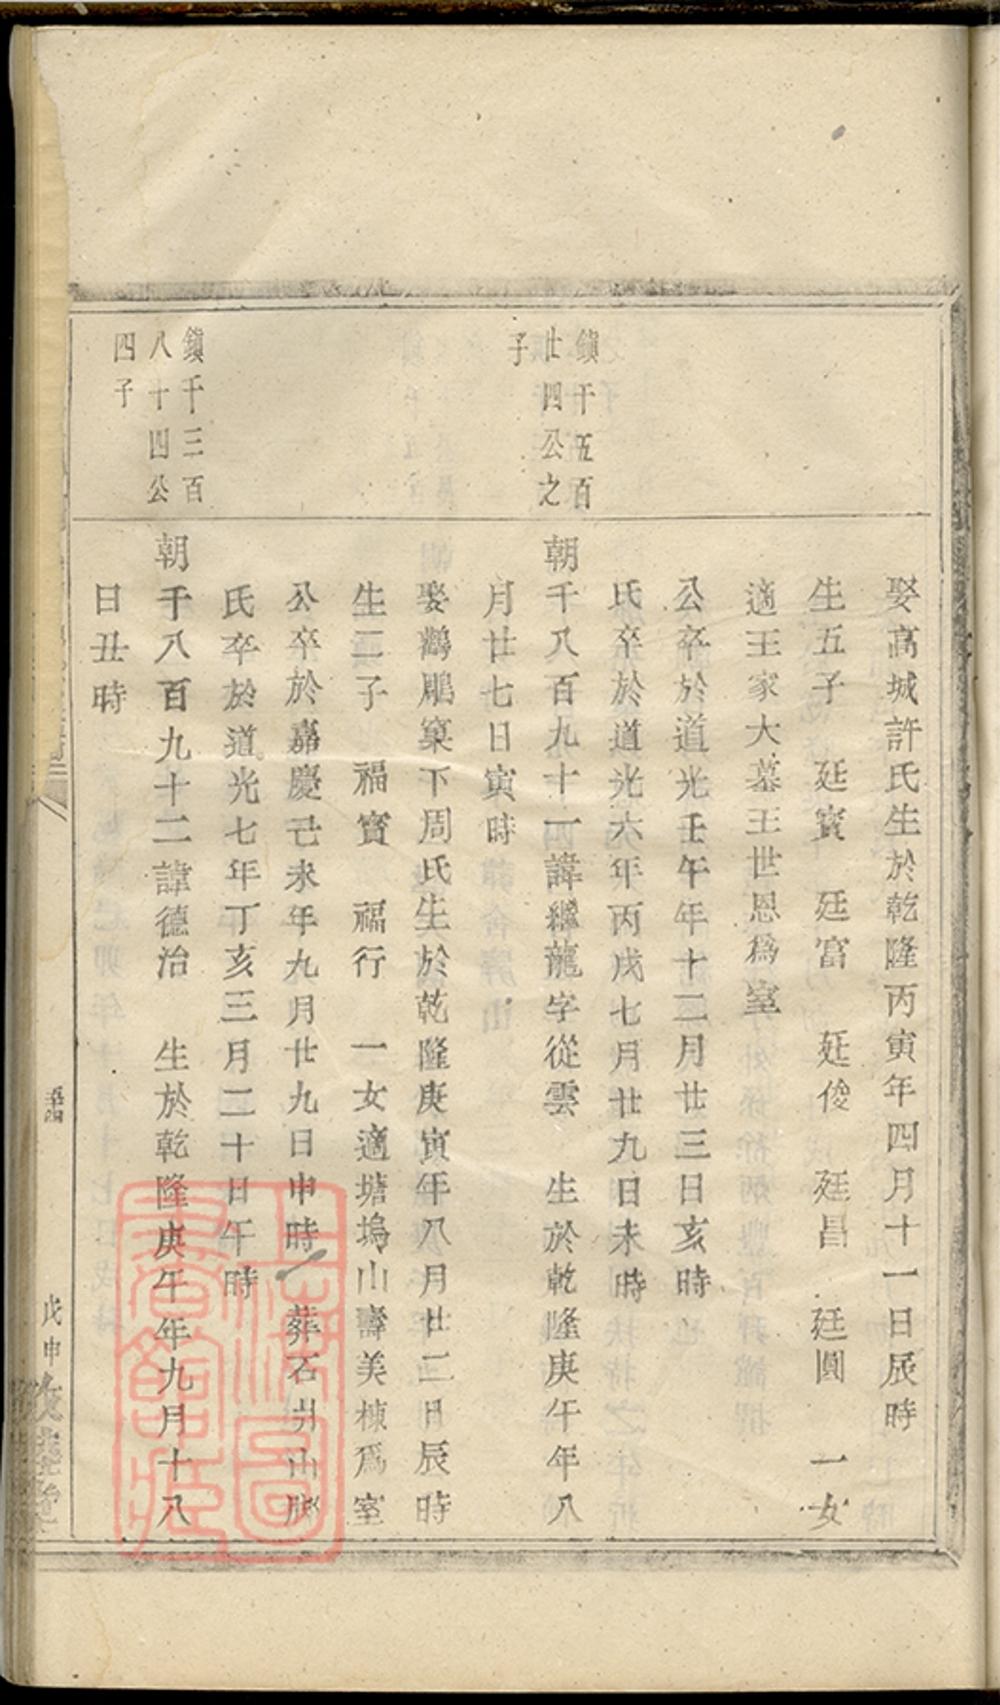 娶高城許氏生於乾隆丙寅年四月十一日辰時
生五子 廷賓 廷富 廷俊 廷昌 廷圓 一女
適王家大墓王世恩爲室
公卒於道光壬午年十二月廿三日亥時
氏卒於道光六年丙戌七月廿九日未時
鎮千五百
廿四公之
子
朝千八百九十一諱繼龍字從雲 生於乾隆庚午年八
月廿七日寅時
娶鷀鵰窠下周氏生於乾隆庚寅年八月廿二日辰時
生二子 福寶 福行 一女適塘塢山壽美棟爲室
公卒於嘉慶己未年九月廿九日申時 葬石井山脚
氏卒於道光七年丁亥三月二十日午時
鎮千三百
八十四公
四子
朝千八百九十二諱德治 生於乾隆庚午年九月十八
日丑時
戊申
上海圖書館藏